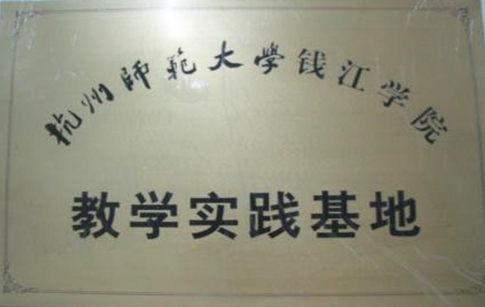 杭州師範大學钱江学院
教学实践基地